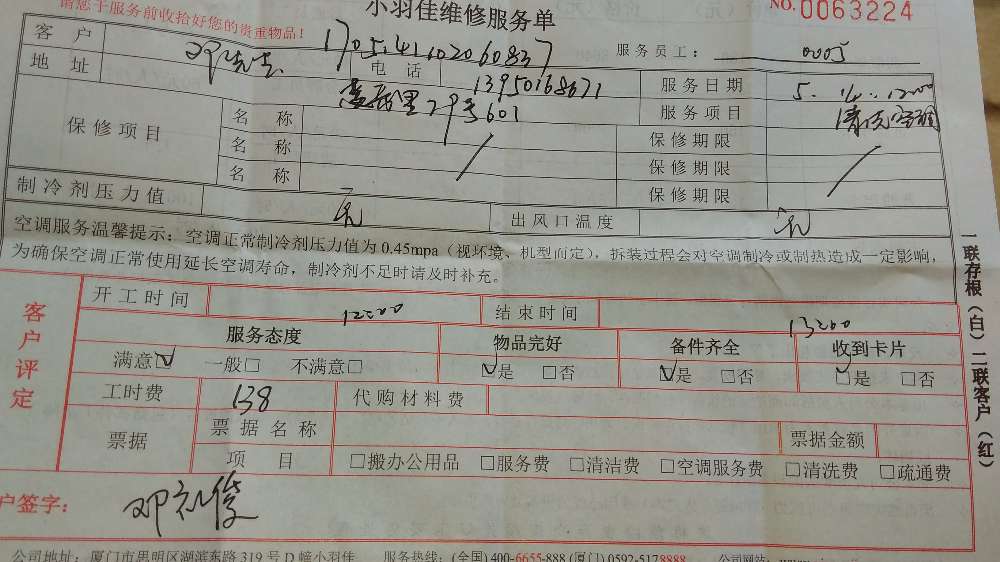 请您于服务前收拾好您的贵重物品!
小羽佳维修服务单
NO.0063224
客户 邓先生 170541102060837 服务员工: 0005
地址 电话 13950168671 服务日期 5.14.12:00
29号601 服务项目 清洗空调
保修项目 名称 / 保修期限 /
名称 保修期限
名称 保修期限
制冷剂压力值 无 出风口温度 无
空调服务温馨提示:空调正常制冷剂压力值为0.45mpa(视环境、机型而定),拆装过程会对空调制冷或制热造成一定影响,
为确保空调正常使用延长空调寿命,制冷剂不足时请及时补充。
客户评定
开工时间 12:00 结束时间 13:00
服务态度 物品完好 备件齐全 收到卡片
满意☑ 一般□ 不满意□ ☑是 □否 ☑是 □否 ☑是 □否
工时费 138 代购材料费
票据 票据名称 票据金额
项目 □搬办公用品 □服务费 □清洁费 □空调服务费 □清洗费 □疏通费
户签字: 邓
公司地址:厦门市思明区湖滨东路319号D幢小羽佳 服务热线:(全国)400-6655-888 (厦门)0592-5178888 公司网站:
一联存根(白)二联客户(红)